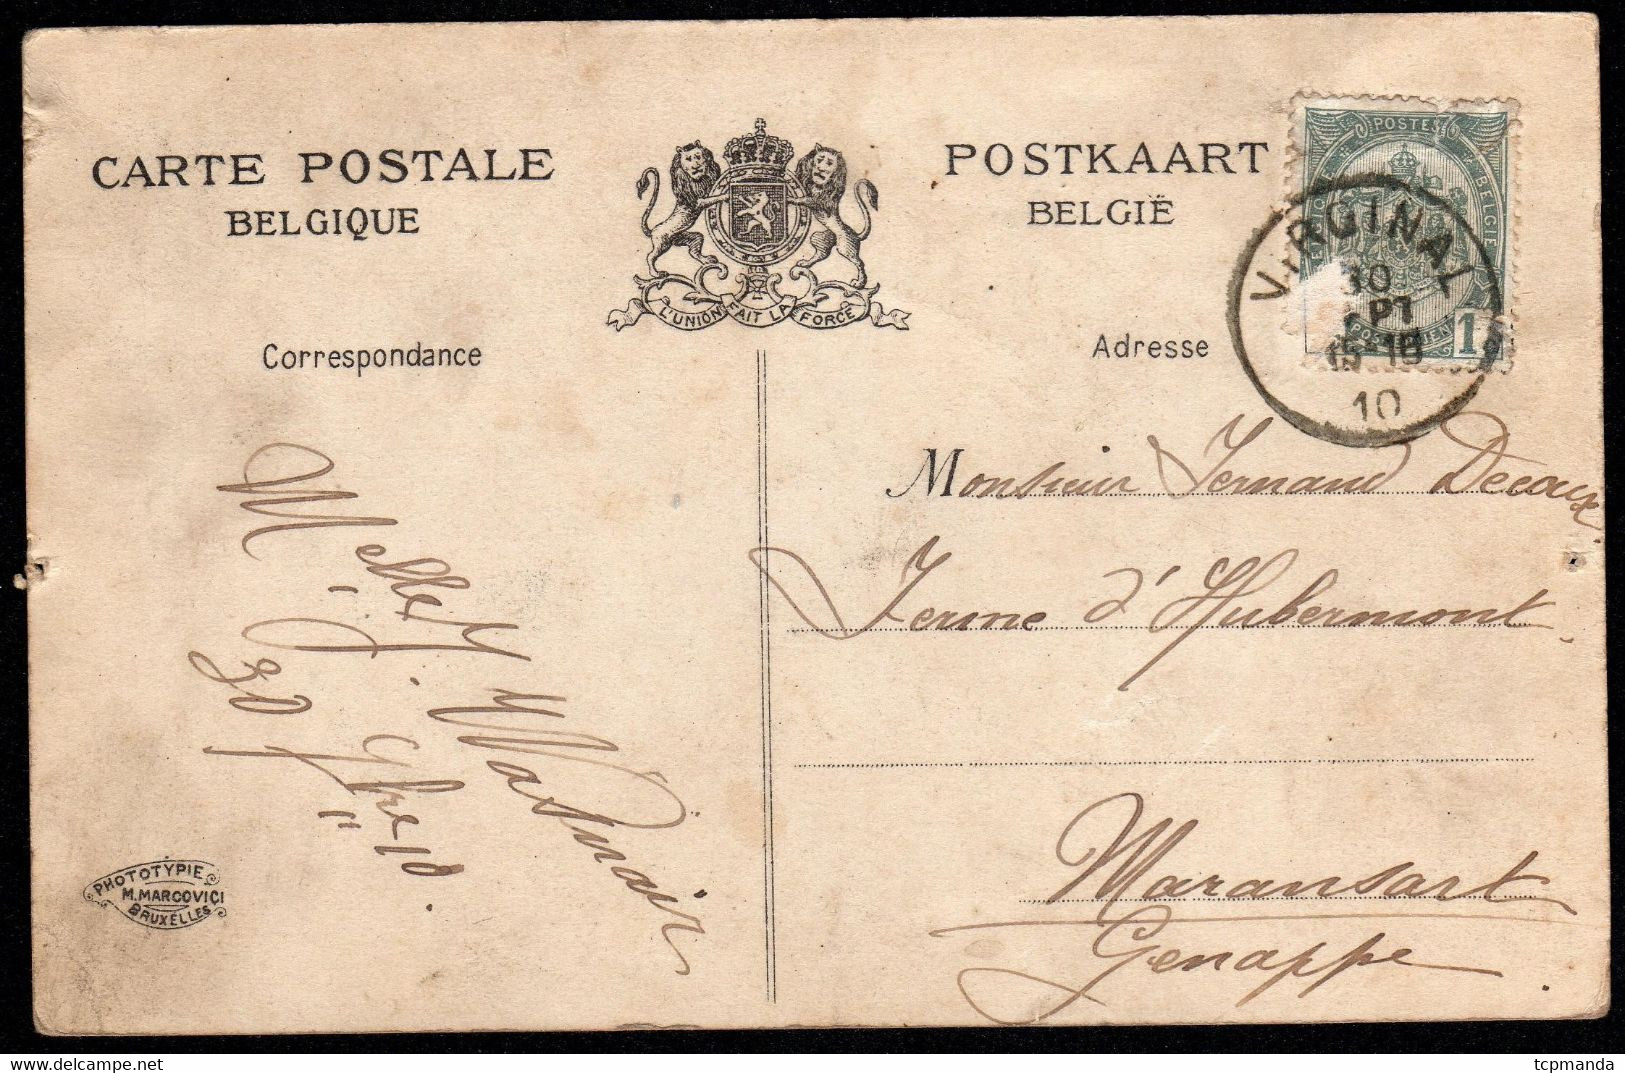 CARTE POSTALE
BELGIQUE
POSTKAART
BELGIË
L'UNION FAIT LA FORCE
Correspondance
Adresse
POSTES
BELGIË
1
VIRGINAL
30
SEPT
15-16
10
Melle J. Wasnair
30 - 9bre 10.
Monsieur Fernand Decoux
Ferme d'Hubermont.
Maransart
Genappe
PHOTOTYPIE
M.MARCOVICI
BRUXELLES
www.delcampe.net
tcpmanda